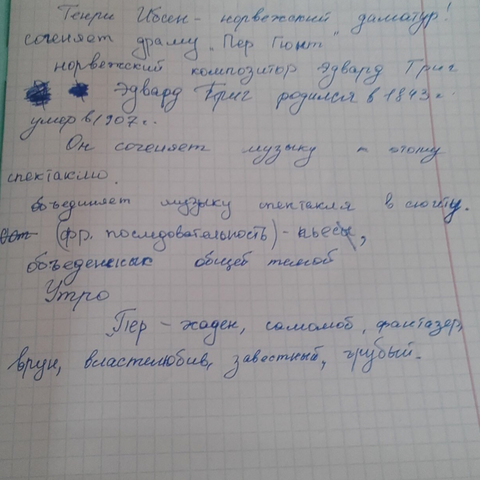 Генри Ибсен - норвежский даматург!
сочиняет драму „Пер Гюнт"
норвежский композитор Эдвард Григ
Эдвард Григ родился в 1843 г.
умер в 1907 г.
Он сочиняет музыку к этому
спектаклю.
объединяет музыку спектакля в сюиту.
(фр. последовательность) - пьесы,
объеденених общей темой
Утро
Пер - жаден, самолюб, фантазер,
врун, властелюбив, завестный, грубый.